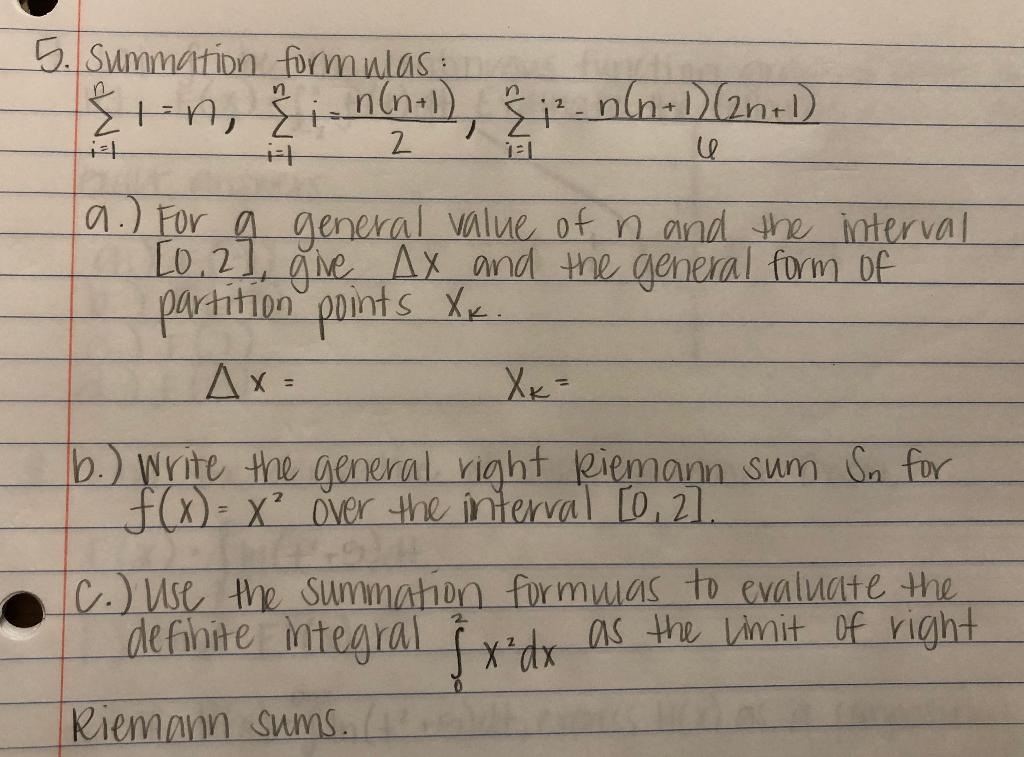 5. Summation formulas:
n∑i=1 1 = n, n∑i=1 i = n(n+1)/2, n∑i=1 i² = n(n+1)(2n+1)/6
a.) For a general value of n and the interval
[0,2], give Δx and the general form of
partition points Xₖ.
Δx = Xₖ =
b.) Write the general right Riemann sum Sₙ for
f(x) = x² over the interval [0,2].
c.) Use the summation formulas to evaluate the
definite integral ∫₀² x²dx as the limit of right
Riemann sums.